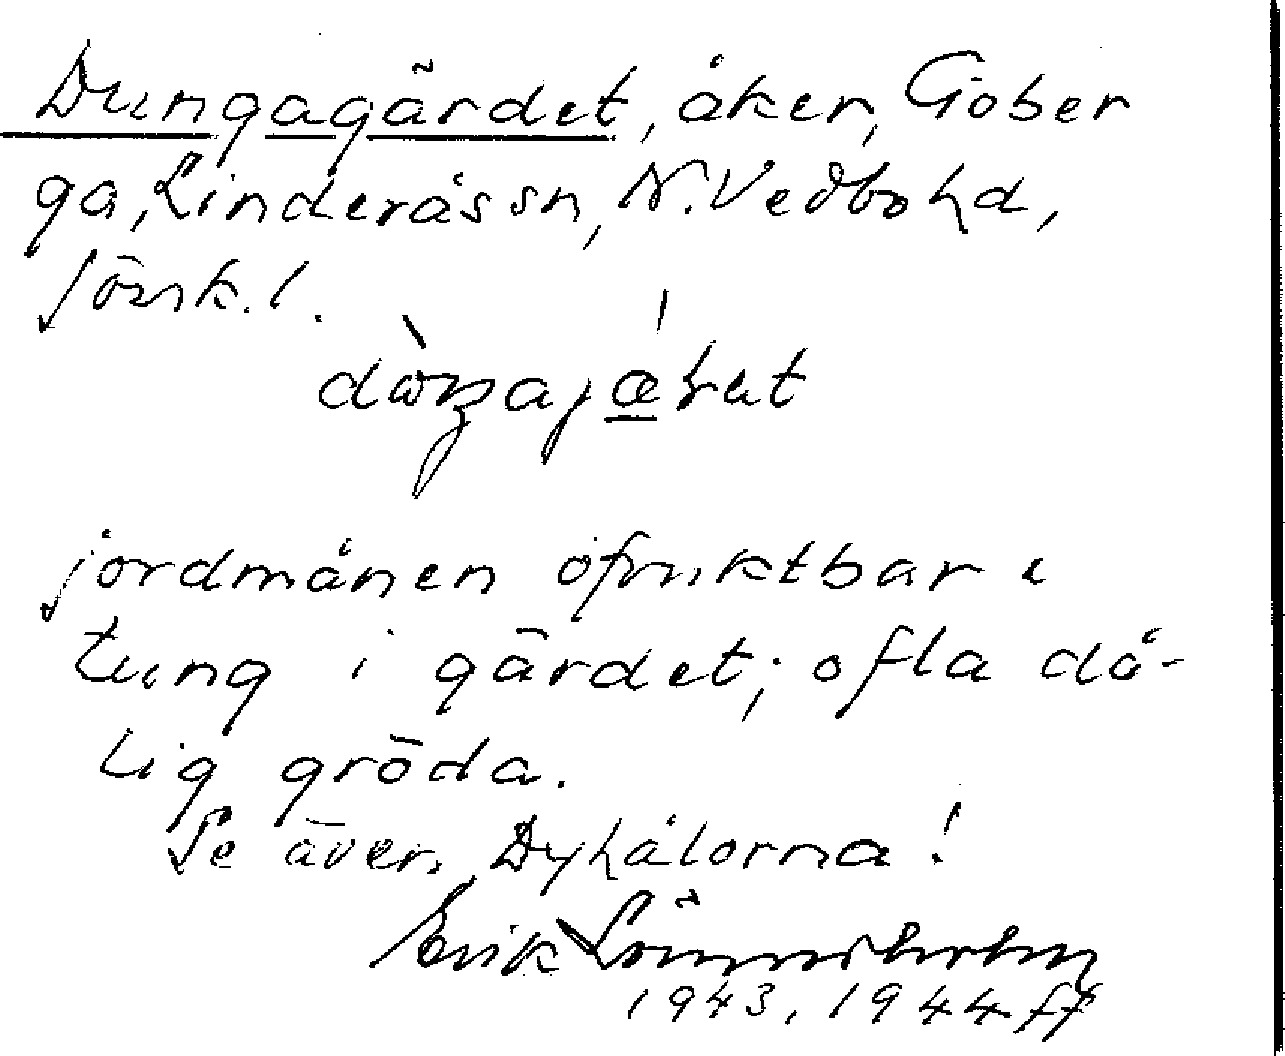 Dungagärdet, åker, Göber
ga, Linderås sn, N. Vedbo hd,
Jönk. l.
jordmånen ofruktbar o
tung i gärdet; ofta då-
lig gröda.
Se även Dyhålorna!
Erik Lönnerholm
1943, 1944 ff